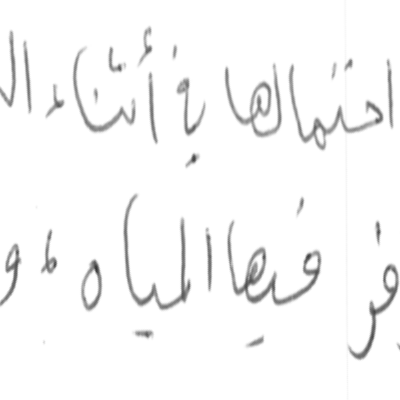 احتمالها في أثناء ال
فر فيها المياه، و